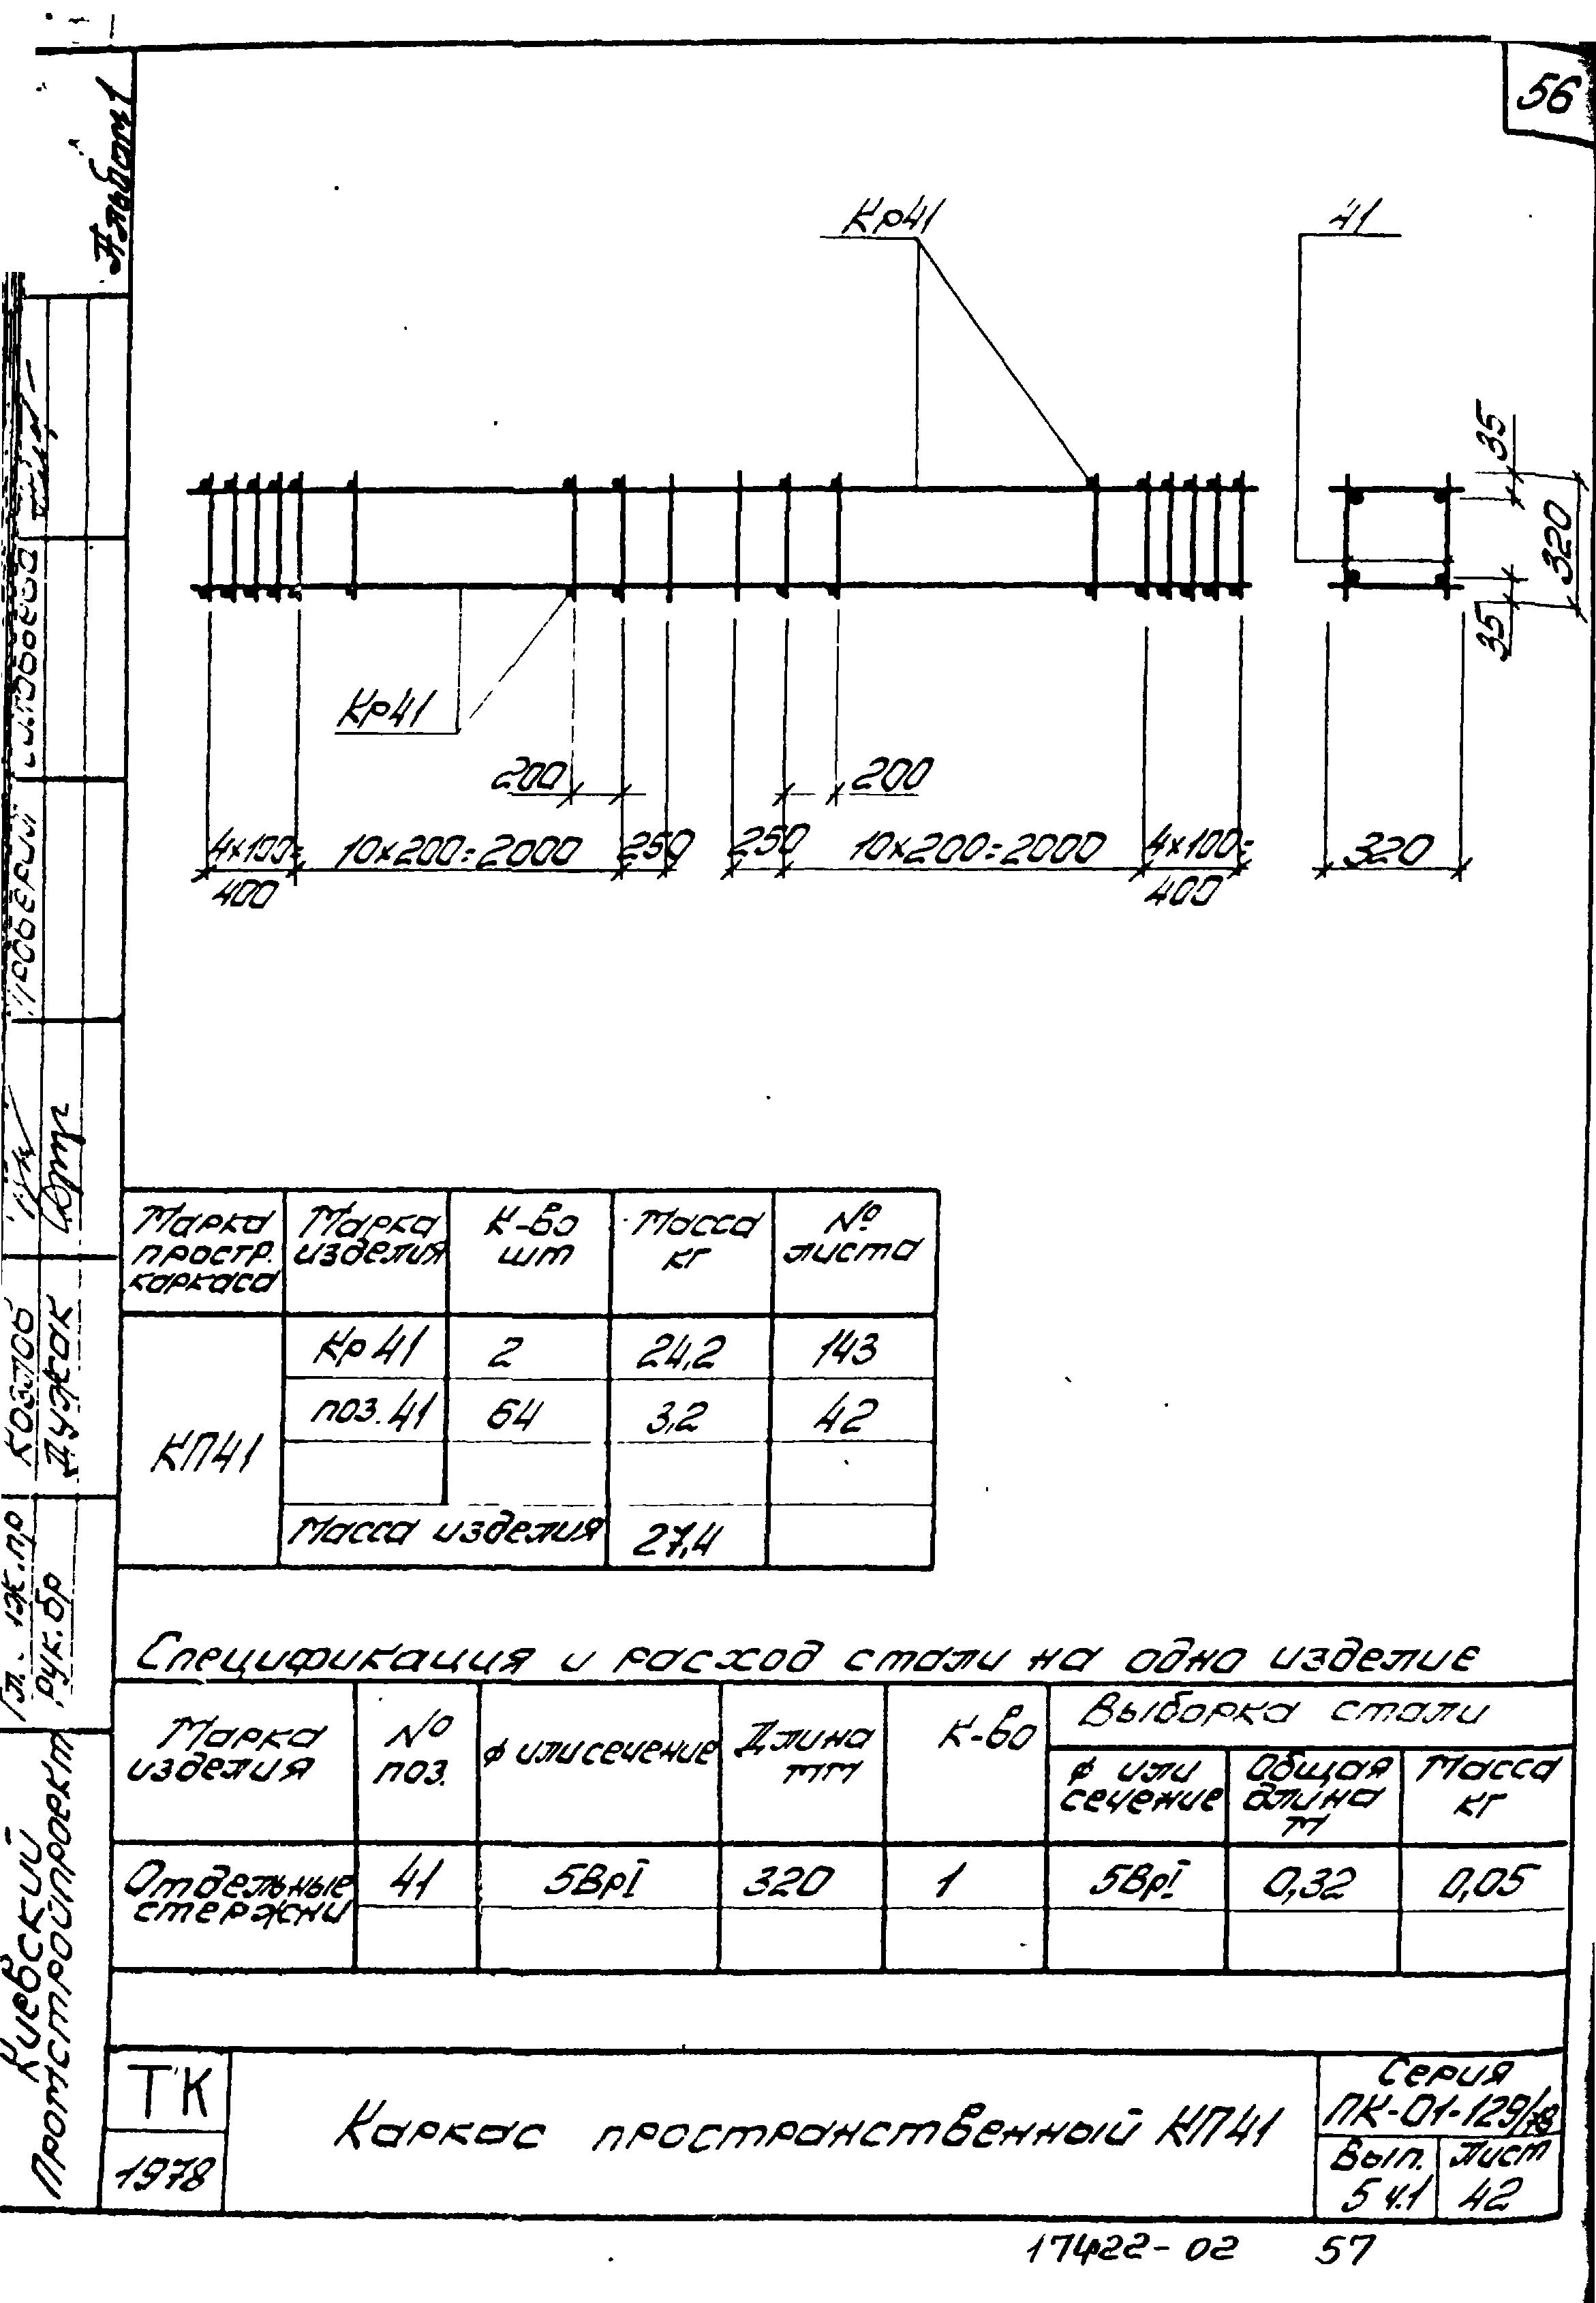 56
Альбом 1
Кр41
41
35
320
35
Кр41
200
200
4х100=
400
10х200=2000
250
250
10х200=2000
4х100=
400
320
Проверил
Козлов
Дужак
Рук.бр
Киевский
Промстройпроект
Марка простр. каркаса
Марка изделия
К-во шт
Масса кг
№ листа
КП41
Кр41 2 24,2 143
поз.41 64 3,2 42
Масса изделия 27,4
Спецификация и расход стали на одно изделие
Марка изделия
№ поз.
ф или сечение
Длина мм
К-во
Выборка стали
ф или сечение
Общая длина м
Масса кг
Отдельные стержни 41 5ВрI 320 1 5ВрI 0,32 0,05
ТК
1978
Каркас пространственный КП41
Серия
ПК-01-129/78
Вып. 5 ч.1
Лист 42
17422-02 57